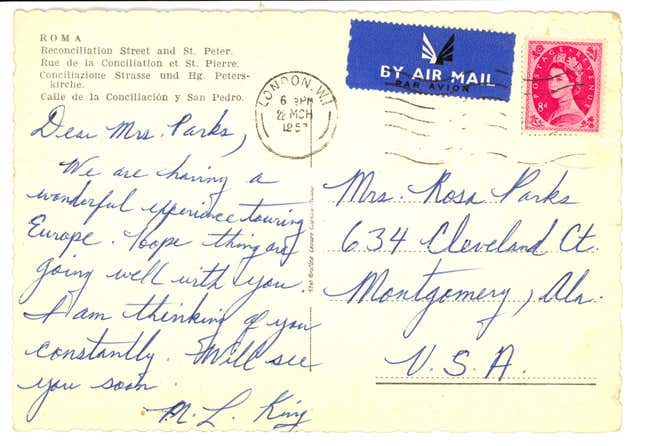 ROMA
Reconciliation Street and St. Peter.
Rue de la Conciliation et St. Pierre.
Conciliazione Strasse und Hg. Peters-
kirche.
Calle de la Conciliación y San Pedro.
BY AIR MAIL
PAR AVION
POSTAGE REVENUE
8D
LONDON. W.1
6 PM
22 MCH
1957
Dear Mrs. Parks,
We are having a
wonderful experience touring
Europe. Hope things are
going well with you.
I am thinking of you
constantly. Will see
you soon.
M. L. King
Mrs. Rosa Parks
634 Cleveland Ct.
Montgomery, Ala.
U. S. A.